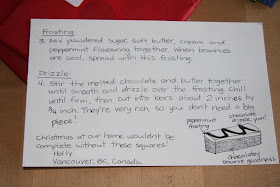 Frosting:
3. Mix powdered sugar, soft butter, cream and
peppermint flavouring together. When brownies
are cool, spread with this frosting.
Drizzle:
4. Stir the melted chocolate and butter together
until smooth and drizzle over the frosting. Chill
until firm, then cut into bars about 2 inches by
3/4 inch. They're very rich, so you don't need a big
piece!
Christmas at our home wouldn't be
complete without these squares!
Holly
Vancouver, BC, Canada
peppermint
frosting
chocolate
drizzle, yum!
chocolatey
brownie goodness